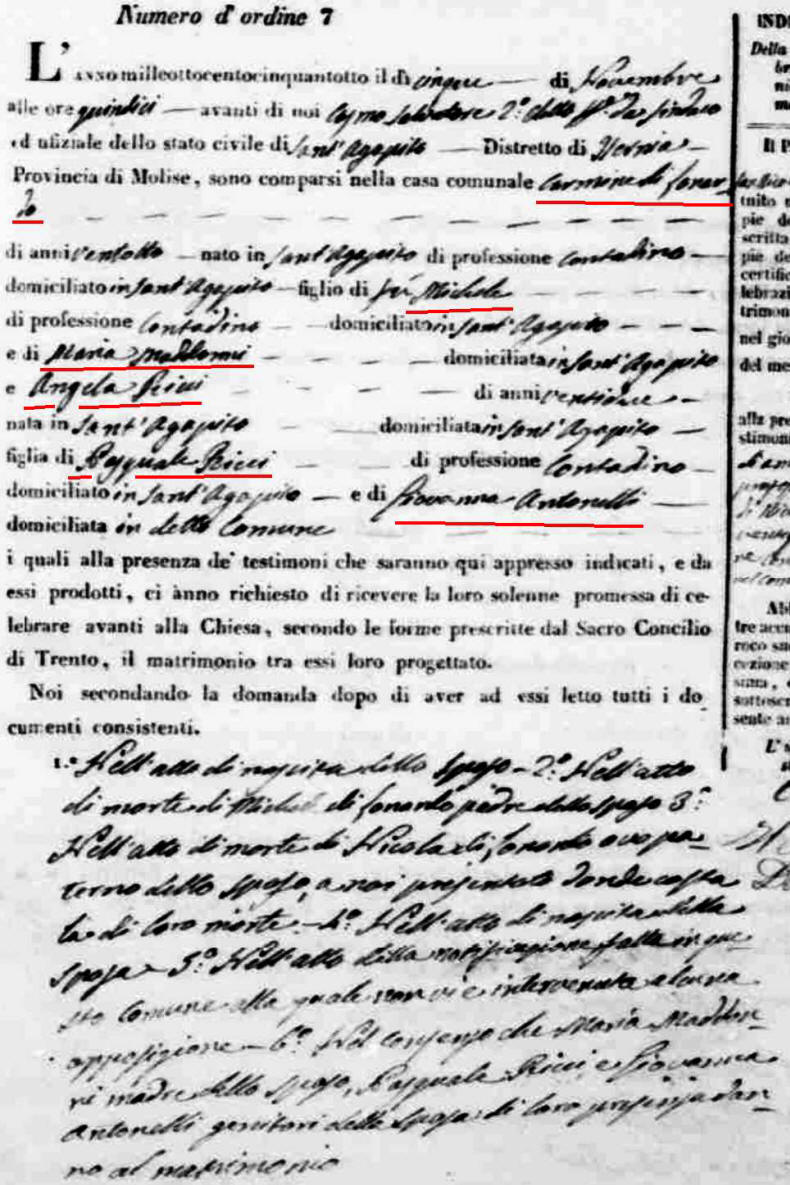 Numero d' ordine 7
L' Anno milleottocentocinquantotto il dì cinque di Novembre
alle ore quindici avanti di noi Salvadore 2.° Sindaco
ed ufiziale dello stato civile di Sant' Agapito Distretto di Isernia
Provincia di Molise, sono comparsi nella casa comunale Carmine di Lonar
do
di anni ventotto nato in Sant' Agapito di professione Contadino
domiciliato in Sant' Agapito figlio di fù Michele
di professione Contadino domiciliato in Sant' Agapito
e di Maria Maddonni domiciliata in Sant' Agapito
e Angela Ricci di anni
nata in Sant' Agapito domiciliata in Sant' Agapito
figlia di Pasquale Ricci di professione Contadino
domiciliato in Sant' Agapito e di Giovanna Antonelli
domiciliata in detto Comune
i quali alla presenza de' testimoni che saranno qui appresso indicati, e da
essi prodotti, ci ànno richiesto di ricevere la loro solenne promessa di ce-
lebrare avanti alla Chiesa, secondo le forme prescritte dal Sacro Concilio
di Trento, il matrimonio tra essi loro progettato.
Noi secondando la domanda dopo di aver ad essi letto tutti i do
cumenti consistenti.
1.° Nell' atto di nascita dello sposo - 2.° Nell' atto
di morte di Michele di Lonardo padre dello sposo 3.°
Nell' atto di morte di Nicola di Lonardo avo pa-
terno dello sposo, a noi presentato donde costa
la di loro morte - 4.° Nell' atto di nascita della
sposa - 5.° Nell' atto della notificazione fatta in que
sto Comune alla quale non vi è intervenuta alcuna
opposizione - 6.° Nel consenso che Maria Maddon-
ni madre dello sposo, Pasquale Ricci, e Giovanna
Antonelli genitori della sposa di loro presenza dan-
no al matrimonio
IND
Della
Il P
tuito
pie de
scritta
pie de
certific
lebrazi
trimon
nel gio
del me
alla pre
stimoni
Abb
tre accu
roco su
cezione
sottoscr
sente a